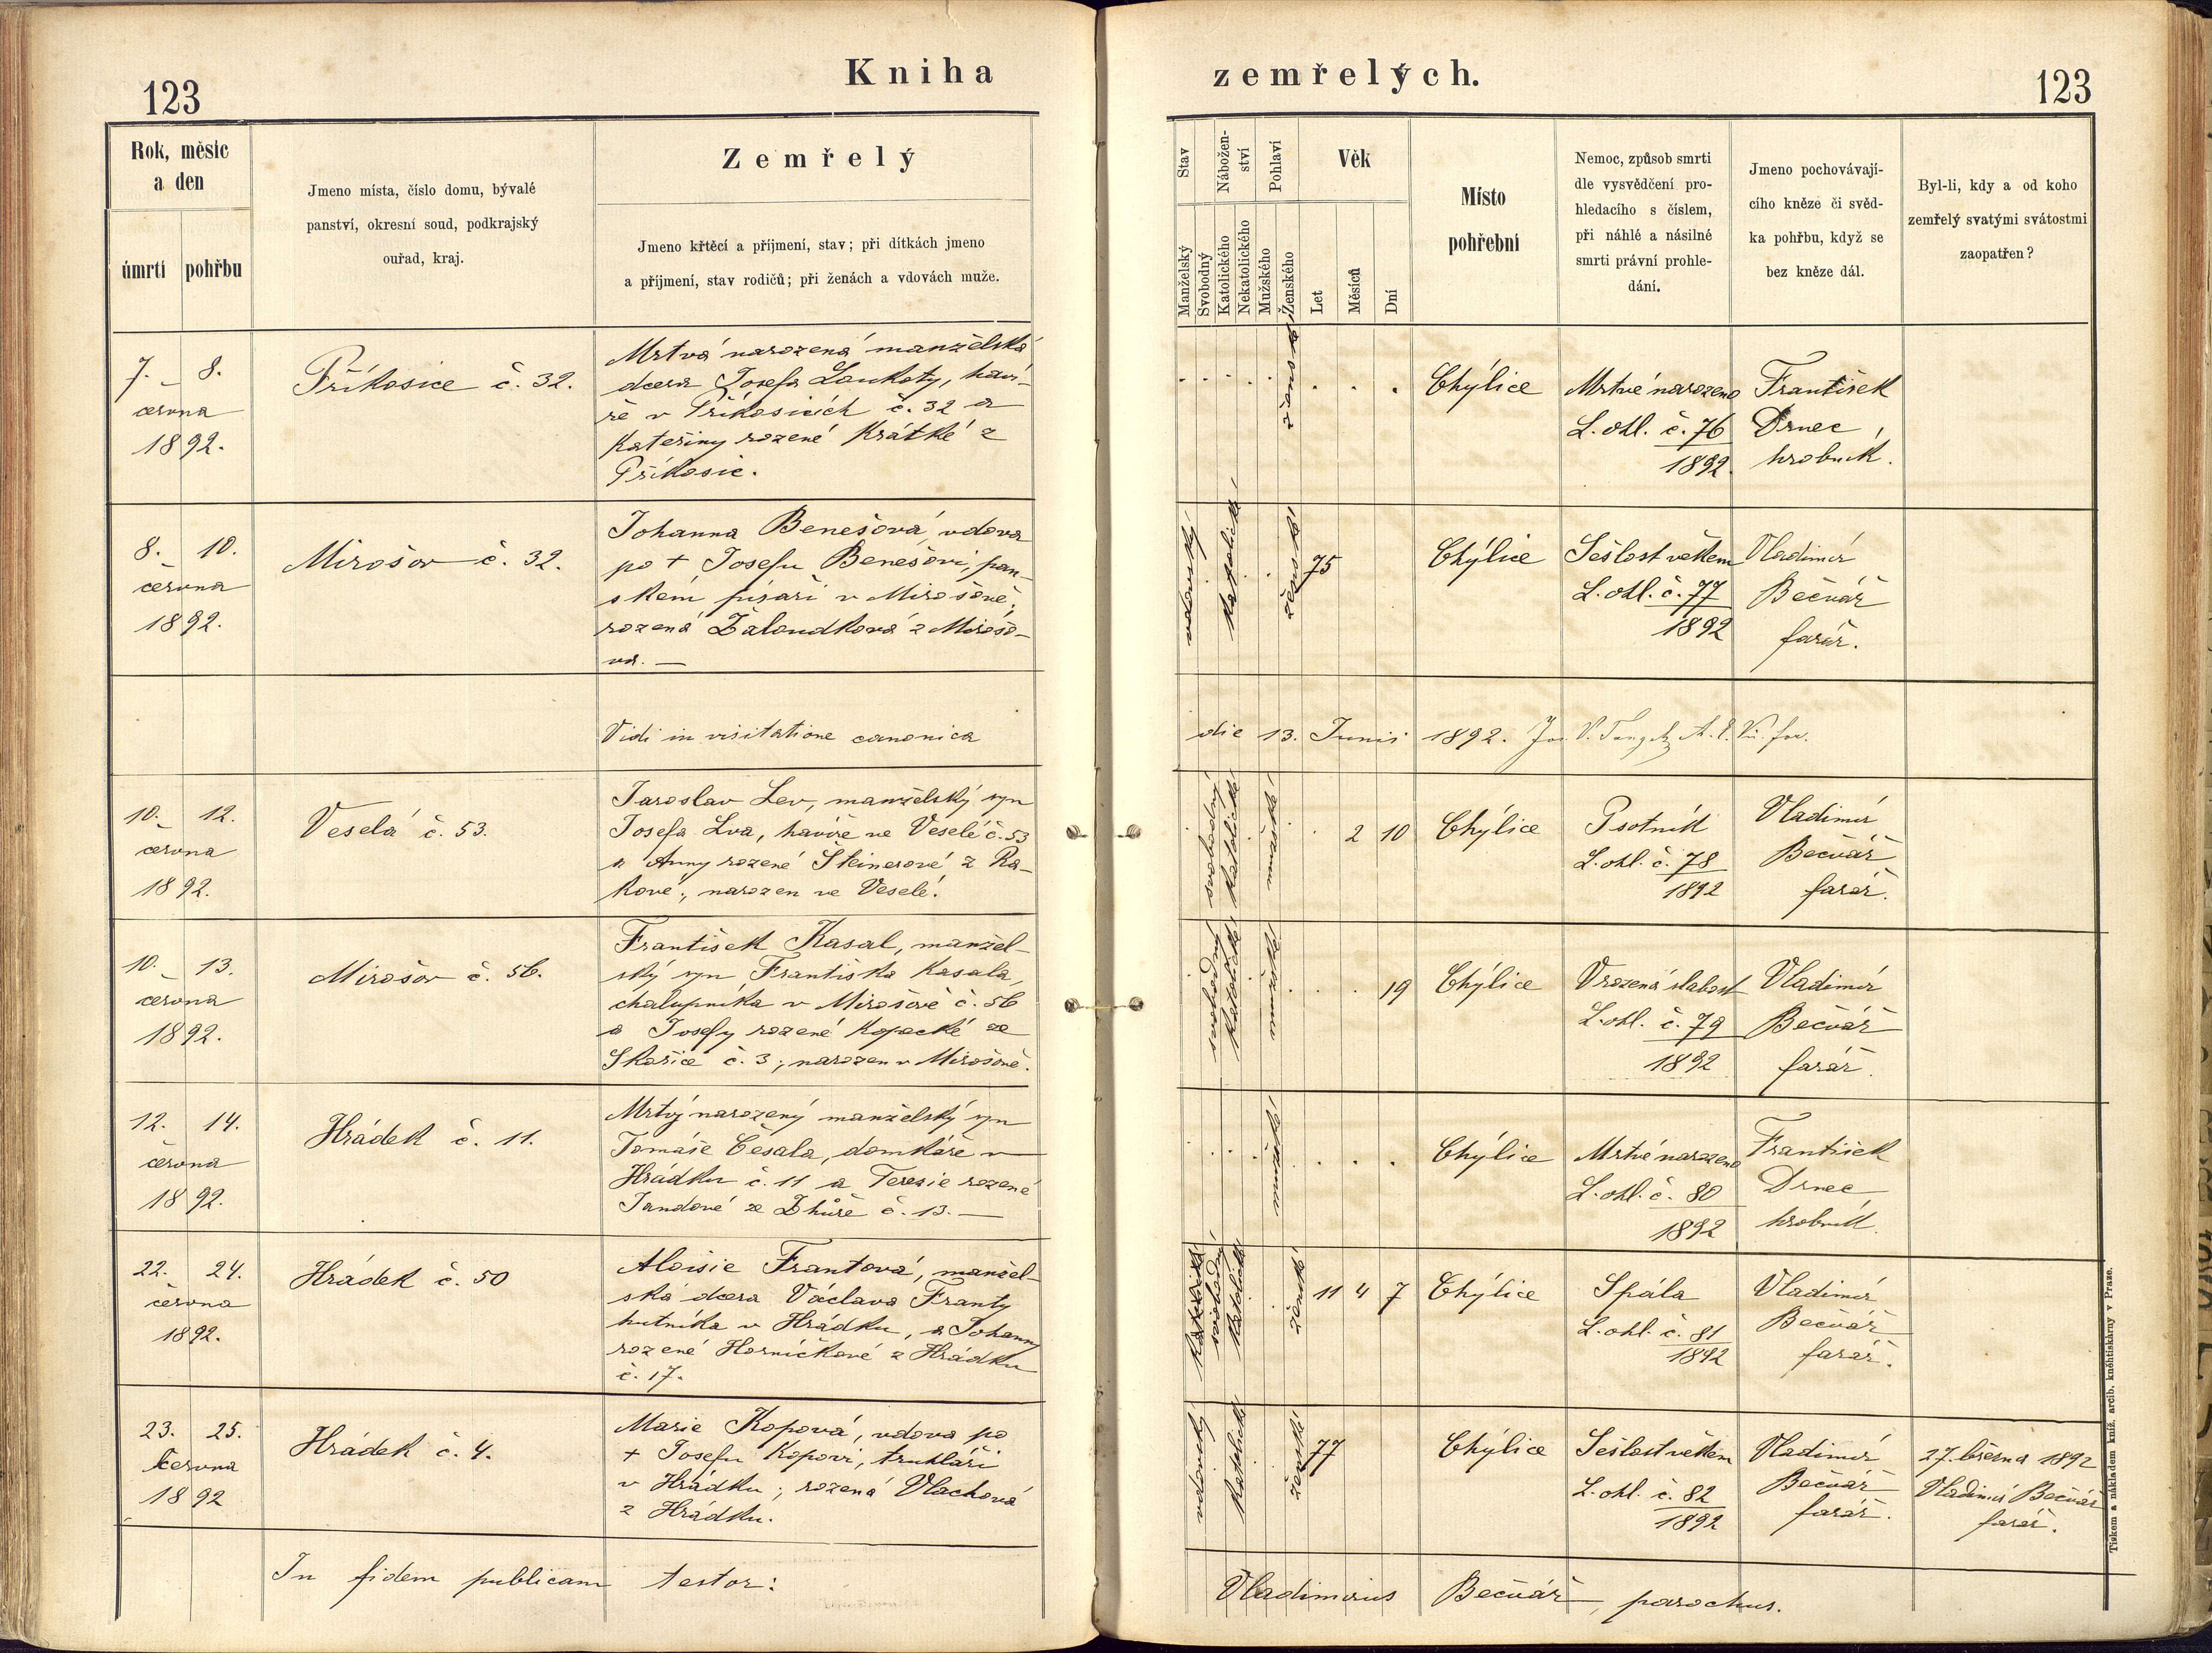 123
Kniha
zemřelých.
123
Rok, měsíc
a den
úmrtí
pohřbu
Jmeno místa, číslo domu, bývalé
panství, okresní soud, podkrajský
ouřad, kraj.
Zemřelý
Jmeno křtěcí a příjmení, stav; při dítkách jmeno
a příjmení, stav rodičů; při ženách a vdovách muže.
Stav
Nábožen-
ství
Pohlaví
Věk
Manželský
Svobodný
Katolického
Nekatolického
Mužského
Ženského
Let
Měsíců
Dní
Místo
pohřební
Nemoc, způsob smrti
dle vysvědčení pro-
hledacího s číslem,
při náhlé a násilné
smrti právní prohle-
dání.
Jmeno pochovávají-
cího kněze či svěd-
ka pohřbu, když se
bez kněze dál.
Byl-li, kdy a od koho
zemřelý svatými svátostmi
zaopatřen?
7. – 8.
června
1892.
Příkosice č. 32.
Mrtvá narozená manželská
dcera Josefa Loukoty, haví-
ře v Příkosicích č. 32 a
Kateřiny rozené Krátké z
Příkosic.
ženské
Chýlice
Mrtvě narozeno
L. ohl. č. 76
1892.
František
Drnec,
hrobník.
8. 10.
června
1892.
Mirošov č. 32.
Johanna Benešová, vdova
po + Josefu Benešovi, pan-
ském písaři v Mirošově,
rozená Žaloudková z Mirošo-
va. —
vdovský
katolické
ženské
75
Chýlice
Sešlost věkem
L. ohl. č. 77
1892
Vladimír
Bečvář
farář.
Vidi in visitatione canonica
die 13. Junii 1892.
10. 12.
června
1892.
Veselá č. 53.
Jaroslav Lev, manželský syn
Josefa Lva, havíře ve Veselé č. 53
a Anny rozené Šteinerové z Ra-
kové; narozen ve Veselé.
svobodný
katolické
mužské
2 10
Chýlice
Psotník
L. ohl. č. 78
1892
Vladimír
Bečvář
farář.
10. – 13.
června
1892.
Mirošov č. 56.
František Kasal, manžel-
ský syn Františka Kasala,
chalupníka v Mirošově č. 56
a Josefy rozené Kopecké ze
Skořice č. 3; narozen v Mirošově.
svobodný
katolické
mužské
19
Chýlice
Vrozená slabost
L. ohl. č. 79
1892
Vladimír
Bečvář
farář.
12. 14.
června
1892.
Hrádek č. 11.
Mrtvý narozený manželský syn
Tomáše Česala, domkáře v
Hrádku č. 11 a Teresie rozené
Jandové ze Žhůře č. 13. —
mužské
Chýlice
Mrtvě narozeno
L. ohl. č. 80
1892
František
Drnec,
hrobník.
22. 24.
června
1892.
Hrádek č. 50
Aloisie Frantová, manžel-
ská dcera Václava Franty
hutníka v Hrádku, a Johanny
rozené Horníčkové z Hrádku
č. 17.
katolické
svobodný
katolické
ženské
11 4 7
Chýlice
Spála
L. ohl. č. 81
1892
Vladimír
Bečvář
farář.
23. 25.
června
1892
Hrádek č. 4.
Marie Kopová, vdova po
+ Josefu Kopovi, truhláři
v Hrádku; rozená Vlachová
z Hrádku.
vdovský
katolické
ženské
77
Chýlice
Sešlost věkem
L. ohl. č. 82
1892
Vladimír
Bečvář
farář.
27. března 1892
Vladimír Bečvář
farář.
In fidem publicam testor:
Vladimirus Bečvář, parochus.
Tiskem a nákladem kníž. arcib. knihtiskárny v Praze.